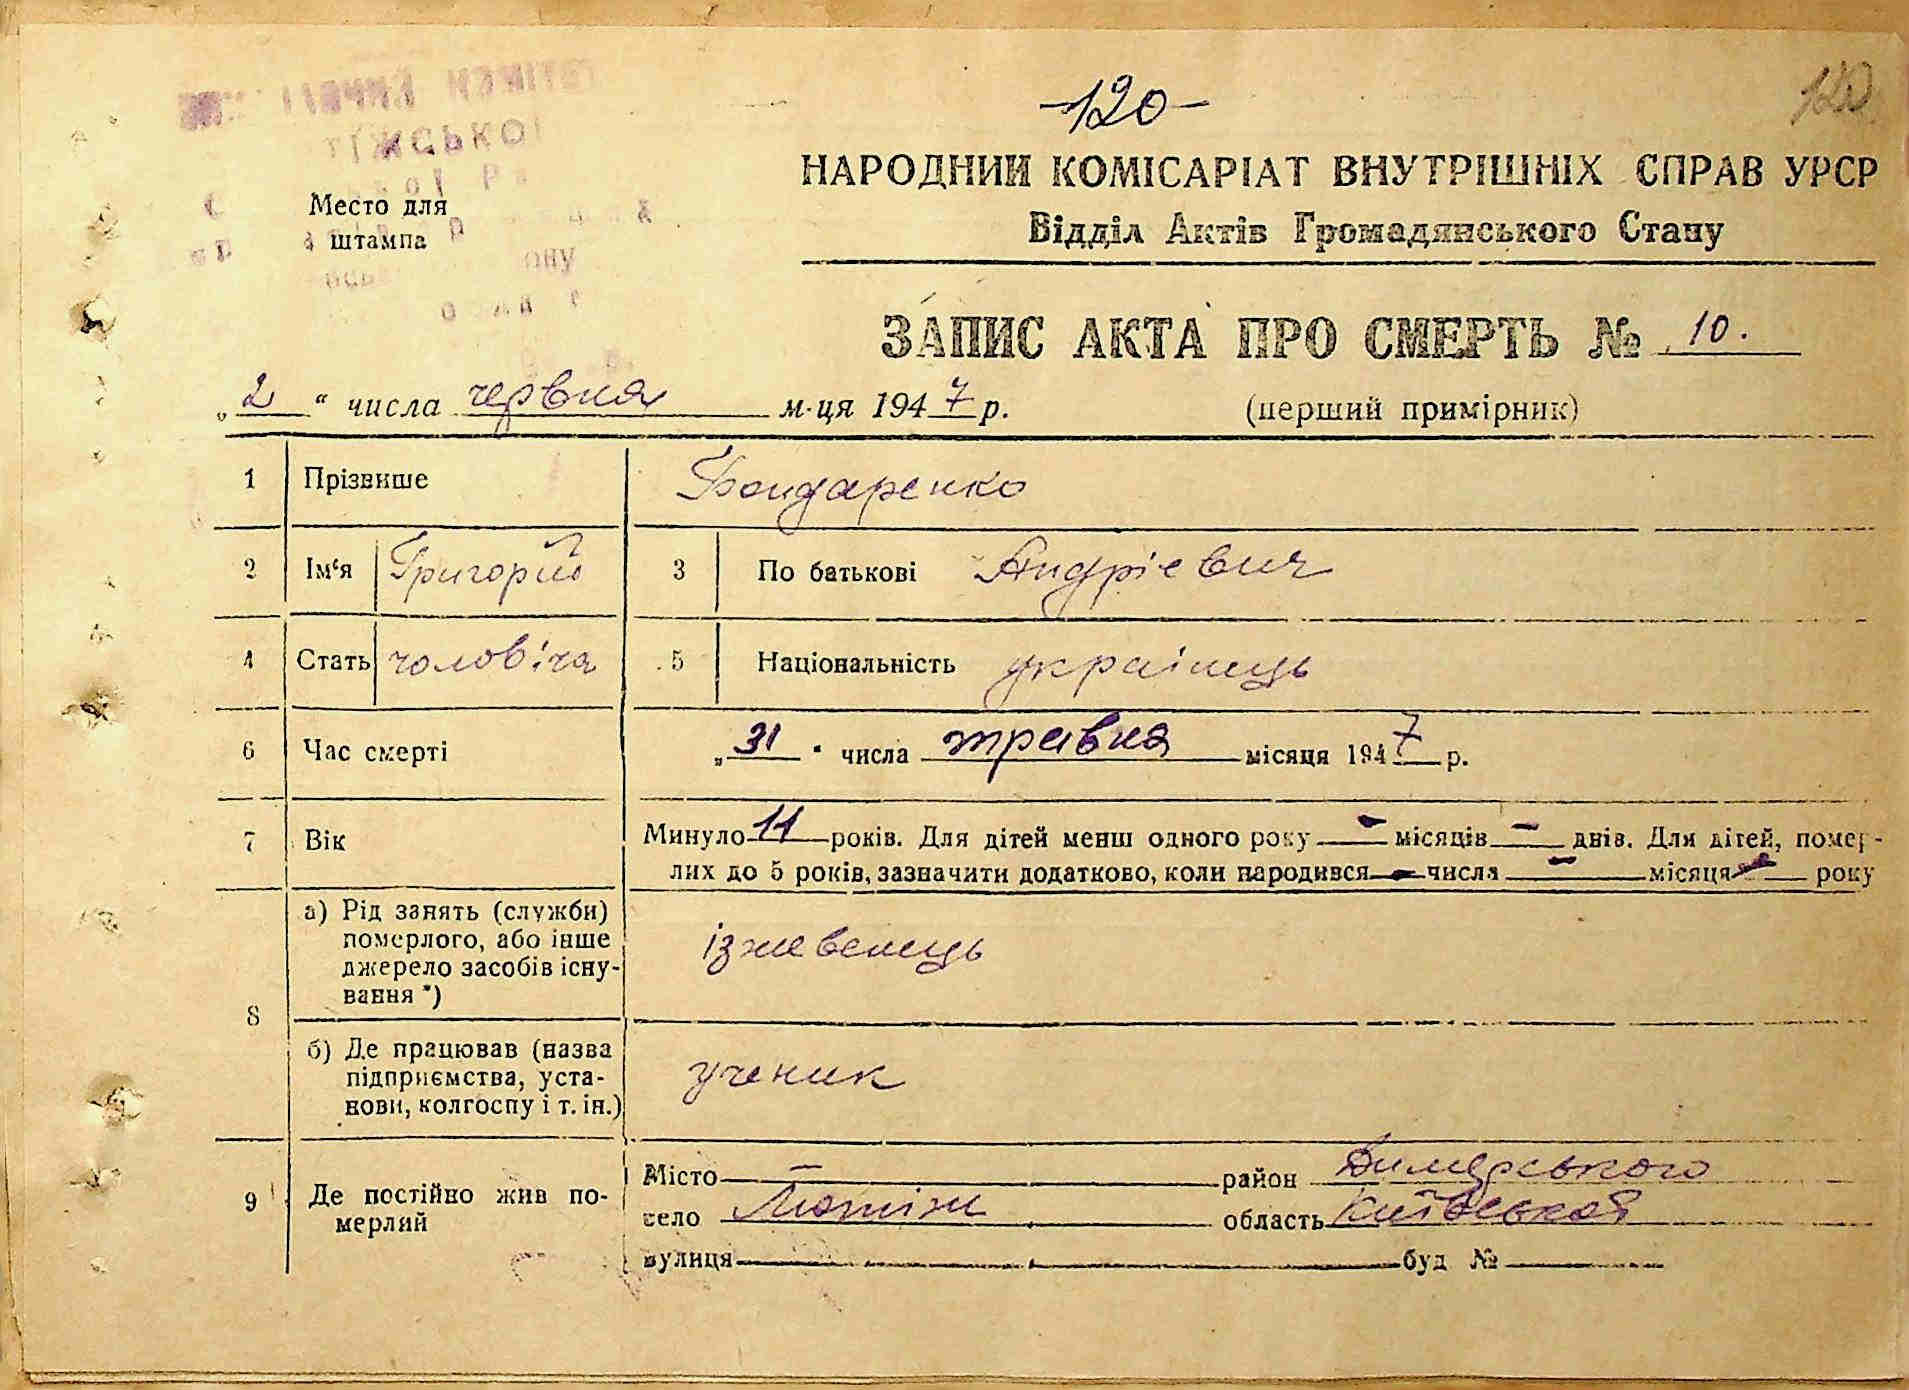 -120-
120
ТІЖСЬКОЇ
Место для
штампа
НАРОДНИЙ КОМІСАРІАТ ВНУТРІШНІХ СПРАВ УРСР
Відділ Актів Громадянського Стану
ЗАПИС АКТА ПРО СМЕРТЬ № 10.
„2“ числа червня м-ця 1947 р. (перший примірник)
1 Прізвище Бондаренко
2 Ім'я Григорій 3 По батькові Андрієвич
4 Стать чоловіча 5 Національність українець
6 Час смерті „31" числа травня місяця 1947 р.
7 Вік Минуло 11 років. Для дітей менш одного року - місяців - днів. Для дітей, помер-
лих до 5 років, зазначити додатково, коли народився - числа - місяця - року
8 а) Рід занять (служби)
померлого, або інше
джерело засобів існу-
вання *)
ізжевенець
б) Де працював (назва
підприємства, уста-
нови, колгоспу і т. ін.)
ученик
9 Де постійно жив по-
мерлий
Місто - район Димерського
село Лютіж область Київська
вулиця буд №